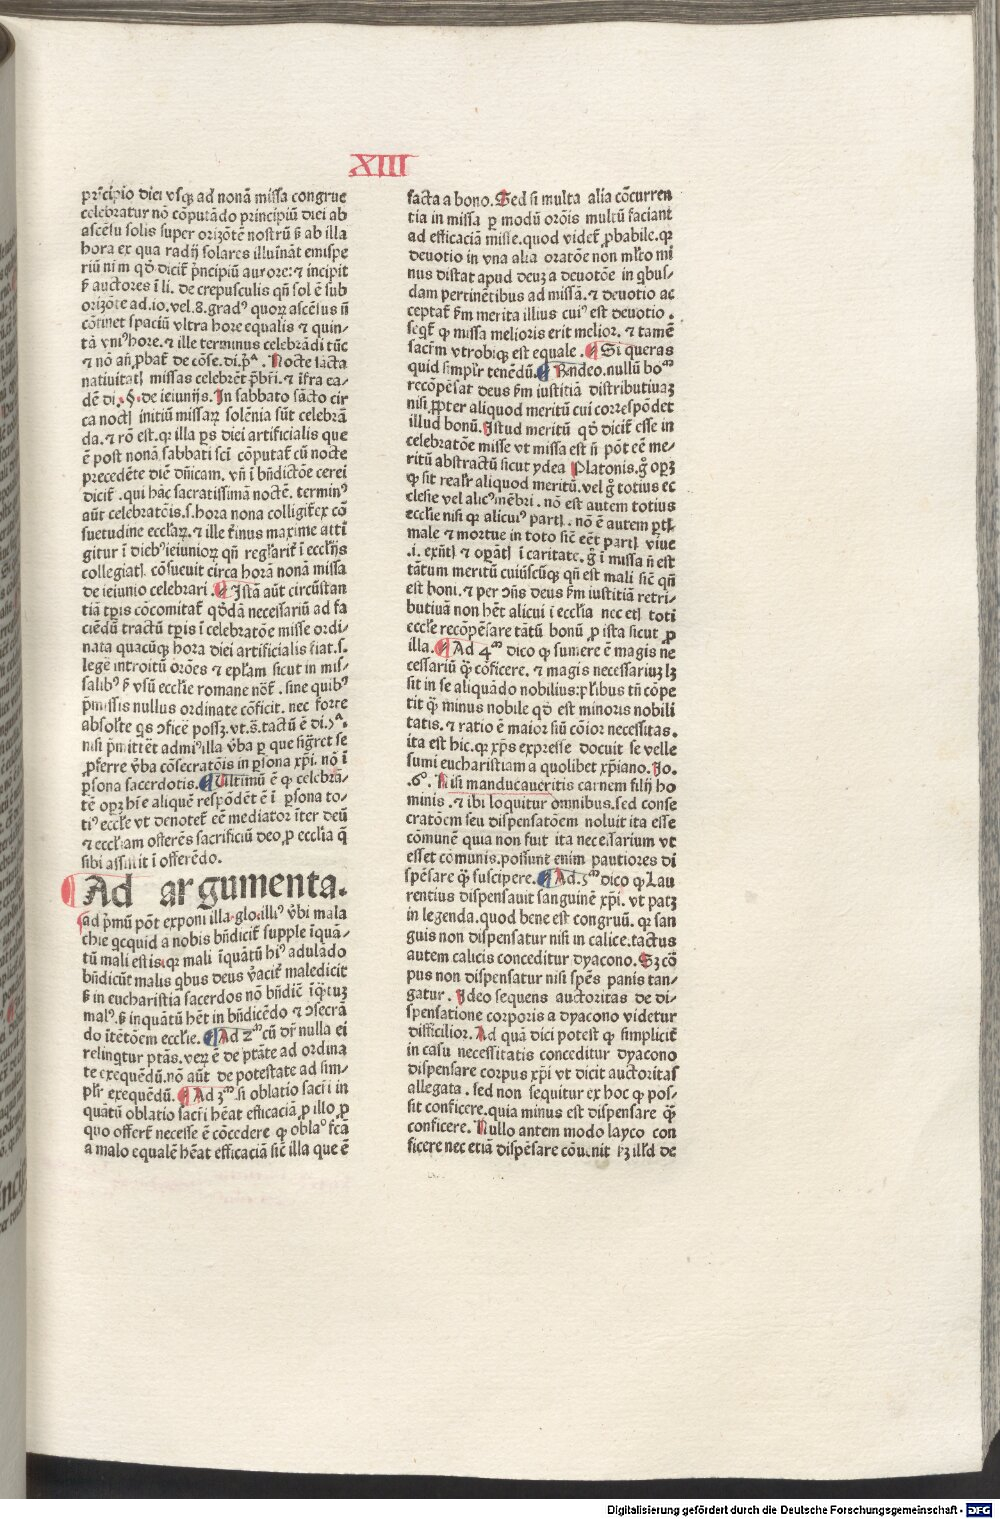 XIII
prīcipio diei vsqꝫ ad nonā missa congrue
celebratur nō cōputādo principiū diei ab
ascēsu solis super orizōtē nostrū ẜ ab illa
hora ex qua radij solares illuīnāt emispe
riū nr̄m qḋ dicit̄ pⁱncipiū aurore: ⁊ incipit
ẜ auctores ī li. de crepusculis qn̄ sol ē sub
orizōte ad .io. vel .8. gradꝰ quoꝝ ascēsus n̄
cōtinet spaciū vltra hore equalis ⁊ quin-
tā vniꝰ hore. ⁊ ille terminus celebrādi tūc
⁊ nō añ ꝓbat̄ de cōse. di. pᵃ. Nocte sācta
natiuitatꝭ missas celebrēt pr̄bri. ⁊ īfra ea-
dē di. §. de ieiunijs. In sabbato sācto cir
ca noctꝭ initiū missaꝝ solēnia sūt celebrā
da. ⁊ rō est. qꝛ illa ꝑs diei artificialis que
ē post nonā sabbati sc̄i cōputat̄ cū nocte
precedēte diē dn̄icam. vn̄ ī bn̄dictōe cerei
dicit̄. qui hāc sacratissimā noctē. terminꝰ
aūt celebratōis .s. hora nona colligit̄ ex cō
suetudine eccl̄aꝝ. ⁊ ille t̄minus maxime atti
gitur ī diebꝰ ieiunioꝝ qn̄ regl̄arit̄ ī eccl̄ijs
collegiatꝭ cōsueuit circa horā nonā missa
de ieiunio celebrari. Istā aūt circūstan
tiā tꝑis cōcomitat̄ qḋdā necessariū ad fa
ciēdū tractū tꝑis ī celebratōe misse ordi-
nata quacūqꝫ hora diei artificialis fiat .s.
legē introitū orōes ⁊ epl̄am sicut in mis-
salibꝰ ẜ vsū eccl̄ie romane nōt̄. sine quibꝰ
pⁱmissis nullus ordinate cōficit. nec forte
absol'te qͥs ꝯficē possꝫ. vt .s̄. tactū ē di. ꝯᵃ.
nisi pⁱmittēt admiꝰ illa v̄ba ꝑ que sig̃ret se
ꝓferre v̄ba cōsecratōis in ꝑsona xp̄i. nō ī
ꝑsona sacerdotis. Vltimū ē ꝙ celebrā-
tē opꝫ hr̄e aliquē respōdēt̄ ē ī ꝑsona to-
tiꝰ eccl̄e vt denotet̄ eē mediator īter deū
⁊ eccl̄iam offerēs sacrificiū deo, ꝓ eccl̄ia q̄
sibi assistit ī offerēdo.
Ad argumenta.
ad pⁱmū pōt exponi illa glo. illiꝰ v̄bi mala
chie qͥcquid a nobis bn̄dicit̄ supple īquā-
tū mali estis. qꝛ mali īquātū hiꝰ adulado
bn̄dicūt malis qͥbus deus v̄acit̄ maledicit
ẜ in eucharistia sacerdos nō bn̄dic̄ īqⁱtuꝫ
malꝰ. ẜ inquātū hēt in bn̄dicēdo ⁊ ꝯsecrā
do ītētōem eccl̄ie. Ad 2ᵐ cū dr̄ nulla ei
relinqͥtur ptās. veꝝ ē de ptāte ad ordina
te exequēdū. nō aūt de potestate ad sim-
pl'r exequēdū. Ad 3ᵐ. si oblatio sacr̄i in
quātū oblatio sacr̄i hēat efficaciā ꝓ illo, ꝓ
quo offert̄ necesse ē cōcedere ꝙ oblaᵒ fc̄ā
a malo equalē hēat efficaciā sic̄ illa que ē
facta a bono. Sed si multa alia cōcurren
tia in missa ꝑ modū orōis multū faciant
ad efficaciā misse. quod videt̄ ꝓbabile. qꝛ
deuotio in vna alia oratōe non ml̄to mi
nus distat apud deuꝫ a deuotōe in qͥbus-
dam pertinētibus ad missā. ⁊ deuotio ac
ceptat̄ ẜm merita illius cuiꝰ est deuotio.
seqͥt̄ ꝙ missa melioris erit melior. ⁊ tamē
sacr̄m vtrobiqꝫ est equale. Si queras
quid simpl'r tenēdū. Rn̄deo. nullū boᵐ
recōpēsat deus ẜm iustitiā distributiuaꝫ
nisi ꝓpter aliquod meritū cui correspōdet
illud bonū. Istud meritū qḋ dicit̄ esse in
celebratōe misse vt missa est n̄ pōt eē me-
ritū abstractū sicut ydea Platonis. g̊ opꝫ
ꝙ sit real'r aliquod meritū. vel g̊ totius ec
clesie vel alicꝰ mēbri. nō est autem totius
eccl̄ie nisi qꝛ alicuiꝰ partꝭ. nō ē autem ꝑtꝭ
male ⁊ mortue in toto sic̄ eēt partꝭ viue
.i. exn̄tꝭ ⁊ opātꝭ ī caritate. g̊ ī missa n̄ est
tātum meritū cuiuscūqꝫ qn̄ est mali sic̄ qn̄
est boni. ⁊ per ꝯn̄s deus ẜm iustitiā retri-
butiuā non hēt alicui ī eccl̄ia nec etꝭ toti
eccl̄e recōpēsare tātū bonū ꝓ ista sicut ꝓ
illa. Ad 4ᵐ dico ꝙ sumere ē magis ne
cessariū qⁱ cōficere. ⁊ magis necessariuꝫ lꝫ
sit in se aliquādo nobilius: pl̄ibus tn̄ cōpe
tit qⁱ minus nobile qḋ est minoris nobili
tatis. ⁊ ratio ē maior siū cōior necessitas.
ita est hic. qꝛ xp̄s expresse docuit se velle
sumi eucharistiam a quolibet xp̄iano. Jo.
.6ᵒ. Nisi manducaueritis carnem filij ho
minis. ⁊ ibi loquitur omnibus. sed conse
cratōem seu dispensatōem noluit ita esse
cōmunē quia non fuit ita necessarium vt
esset comunis. possunt enim pautiores di
spēsare qⁱ suscipere. Ad .5ᵐ dico ꝙ Lau
rentius dispensauit sanguinē xp̄i. vt patꝫ
in legenda. quod bene est congruū. qꝛ san
guis non dispensatur nisi in calice. tactus
autem calicis conceditur dyacono. Sꝫ cō
pus non dispensatur nisi spēs panis tan-
gatur. Ideo sequens auctoritas de di-
spensatione corporis a dyacono videtur
difficilior. Ad quā dici potest ꝙ simplicit̄
in casu necessitatis conceditur dyacono
dispensare corpus xp̄i vt dicit auctoritas
allegata. sed non sequitur ex hoc ꝙ pos-
sit conficere. quia minus est dispensare qⁱ
conficere. Nullo autem modo layco con
ficere nec etiā dispēsare cōuenit sꝫ ill'd de
Digitalisierung gefördert durch die Deutsche Forschungsgemeinschaft - DFG